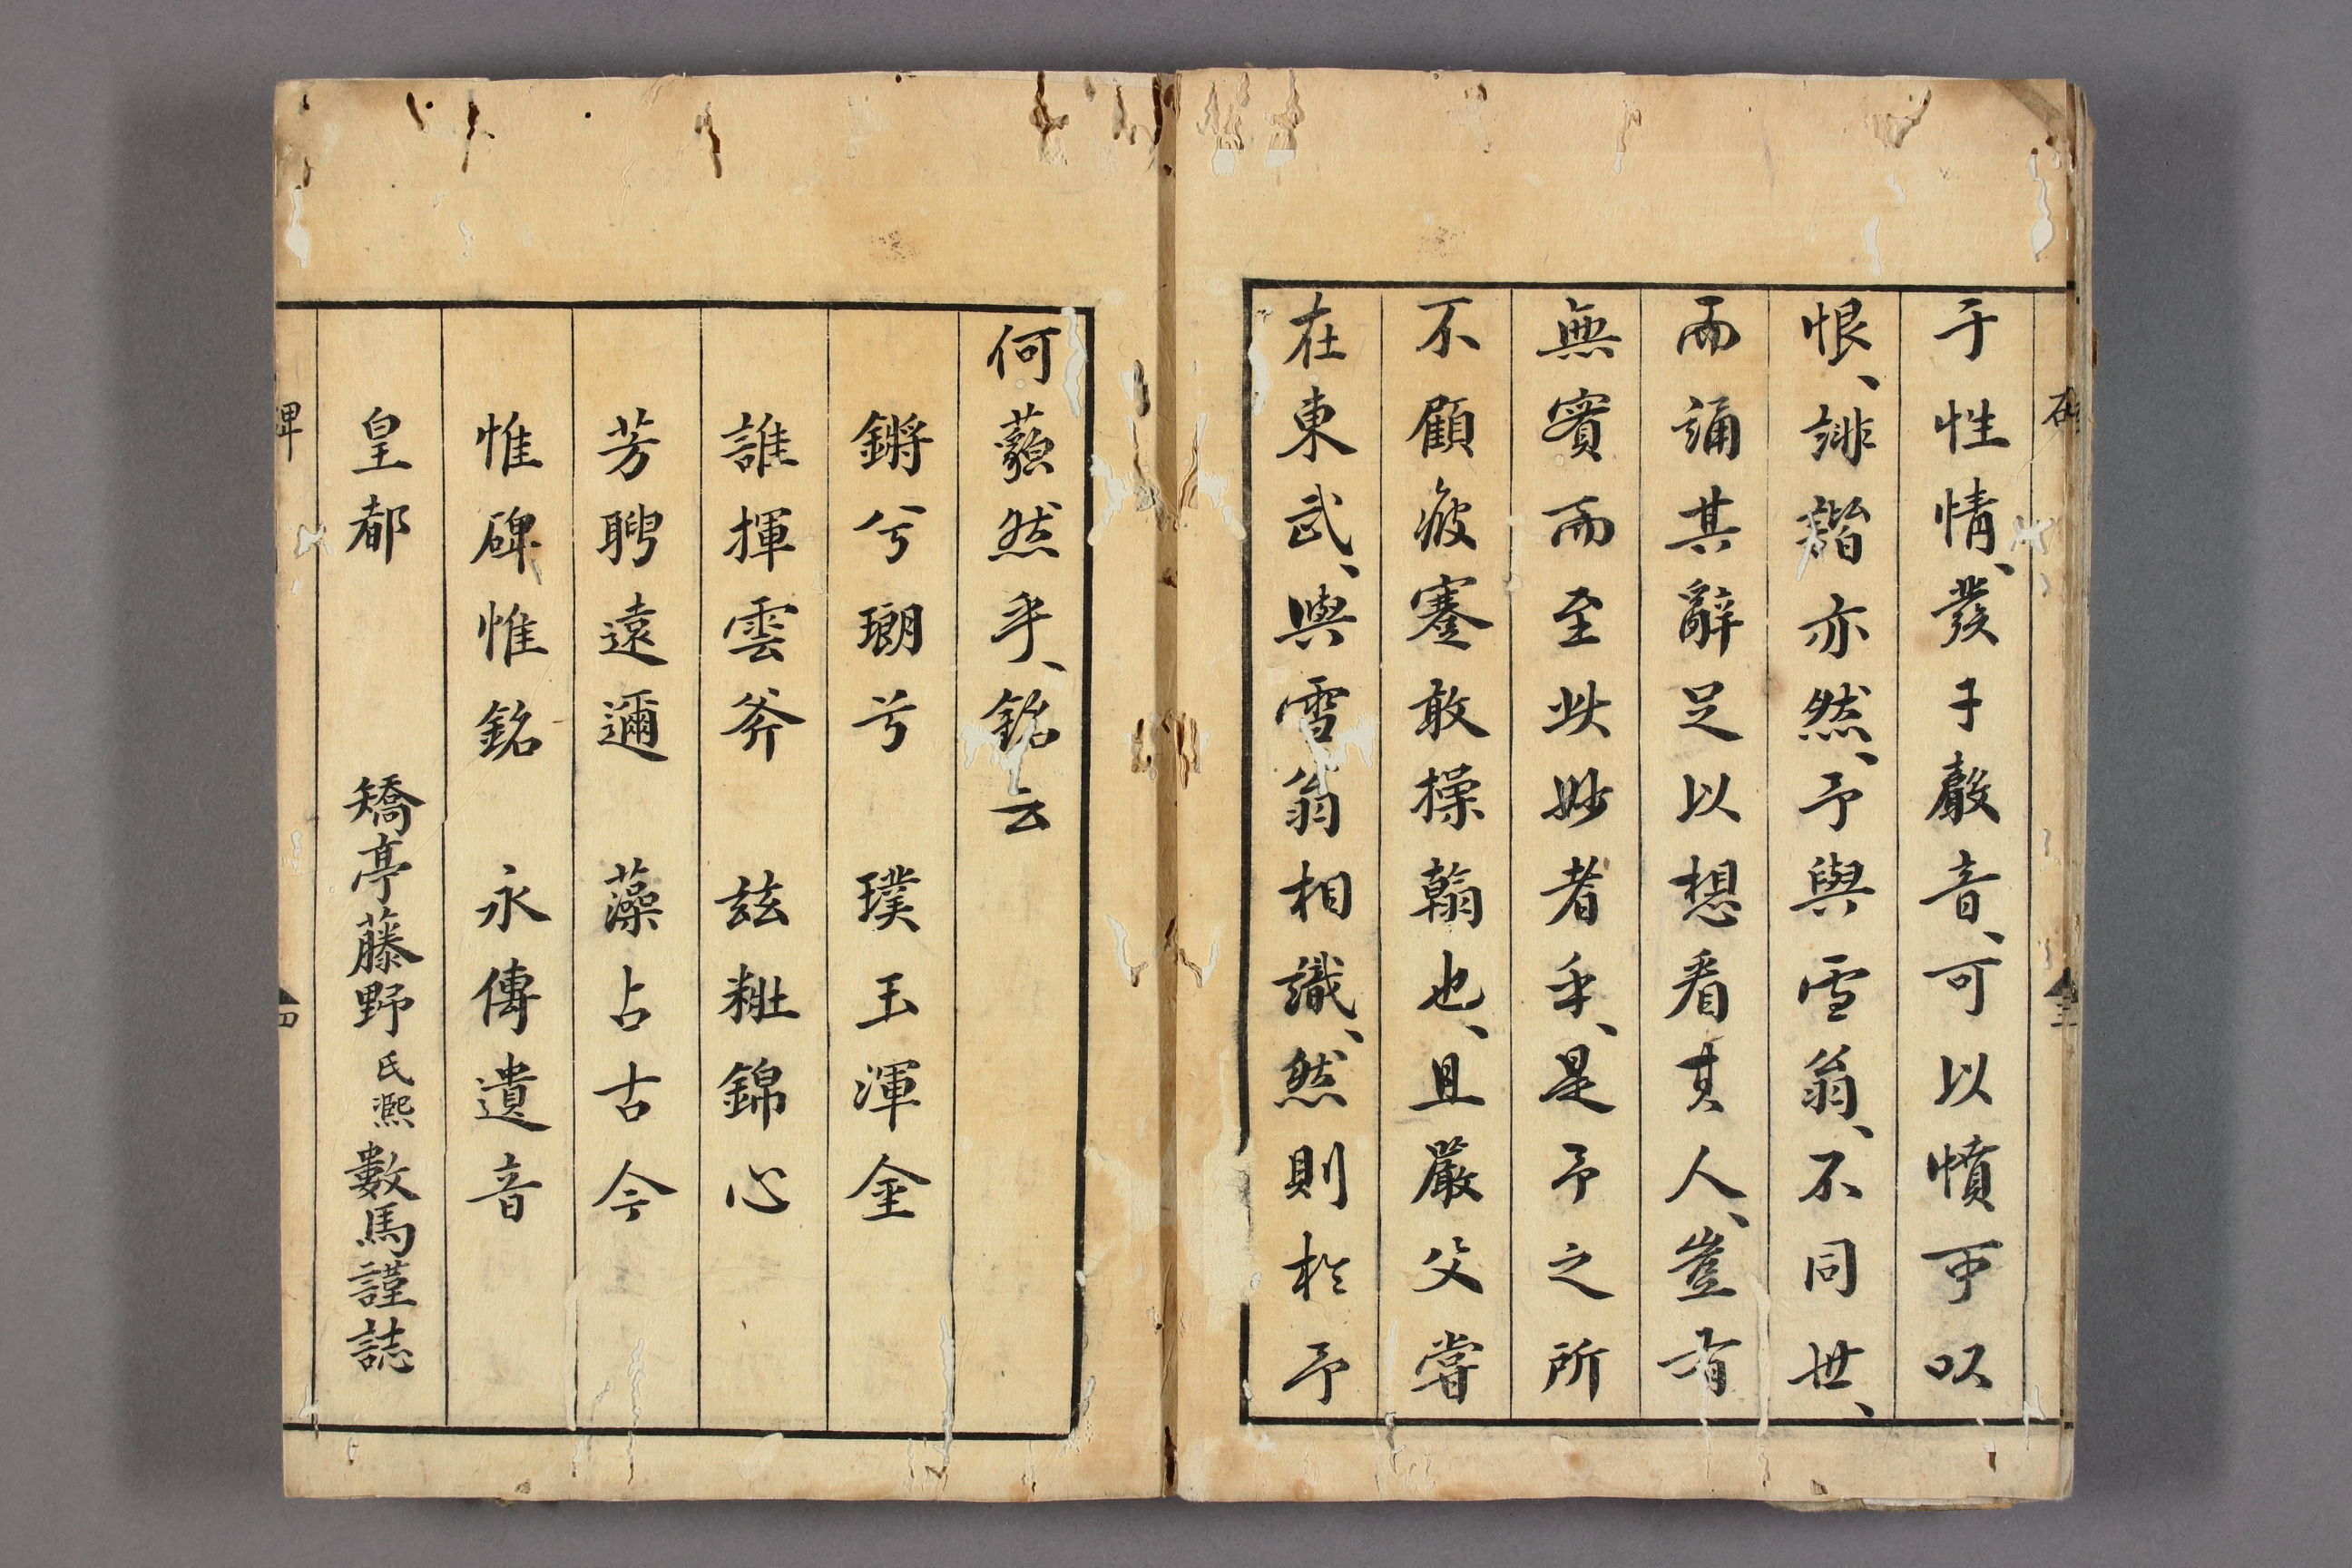 于性情、發于聲音、可以憤可以
恨、誹諧亦然、予與雪翁、不同世、
而誦其辭足以想看其人、豈有
無實而至此妙者乎、是予之所
不顧疲蹇敢操翰也、且嚴父嘗
在東武、與雪翁相識、然則於予
何藐然乎、銘云
鏘兮瑚兮　璞玉渾金
誰揮雲斧　玆粃錦心
芳聘遠邇　藻占古今
惟碑惟銘　永傳遺音
皇都　矯亭藤野氏熙數馬謹誌